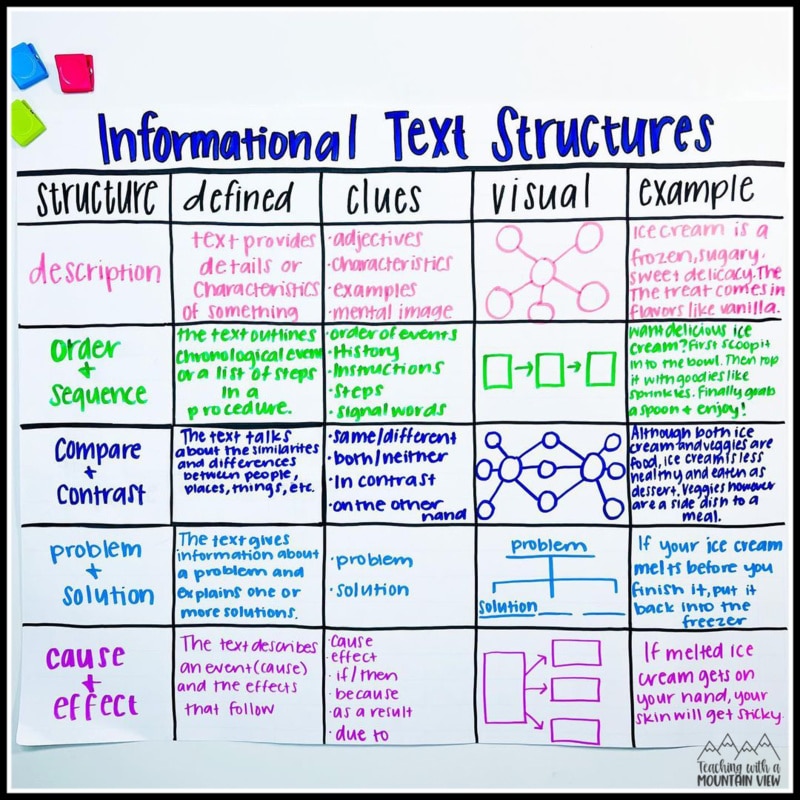 Informational Text Structures
structure defined clues visual example
description
text provides
details or
characteristics
of something
·adjectives
·characteristics
·examples
·mental image
Ice cream is a
frozen, sugary,
sweet delicacy. The
The treat comes in
flavors like vanilla.
order
+
sequence
the text outlines
chronological event
or a list of steps
in a
procedure.
·order of events
·History
·Instructions
·steps
·signal words
Want delicious ice
cream? First scoop it
into the bowl. Then top
it with goodies like
sprinkles. Finally grab
a spoon + enjoy!
Compare
+
contrast
The text talks
about the similarites
and differences
between people,
places, things, etc.
·same/different
·both/neither
·In contrast
·on the other
hand
Although both ice
cream and veggies are
food, ice cream is less
healthy and eaten as
dessert. Veggies however
are a side dish to a
meal.
problem
+
solution
The text gives
information about
a problem and
explains one or
more solutions.
·problem
·solution
problem
solution
If your ice cream
melts before you
finish it, put it
back into the
freezer
cause
+
effect
The text describes
an event (cause)
and the effects
that follow
·cause
·effect
·if/then
·because
·as a result
·due to
If melted ice
cream gets on
your hand, your
skin will get sticky.
Teaching with a
MOUNTAIN VIEW